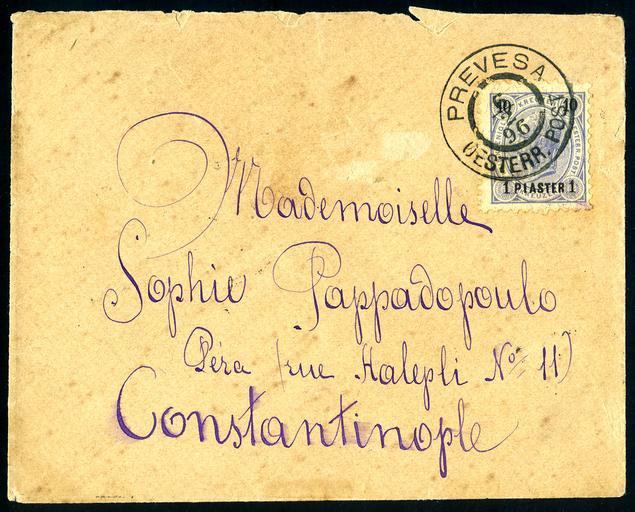 PREVESA
96
OESTERR. POST
10 10
1 PIASTER 1
Mademoiselle
Sophie Pappadopoulo
Péra (rue Halepli No 11)
Constantinople